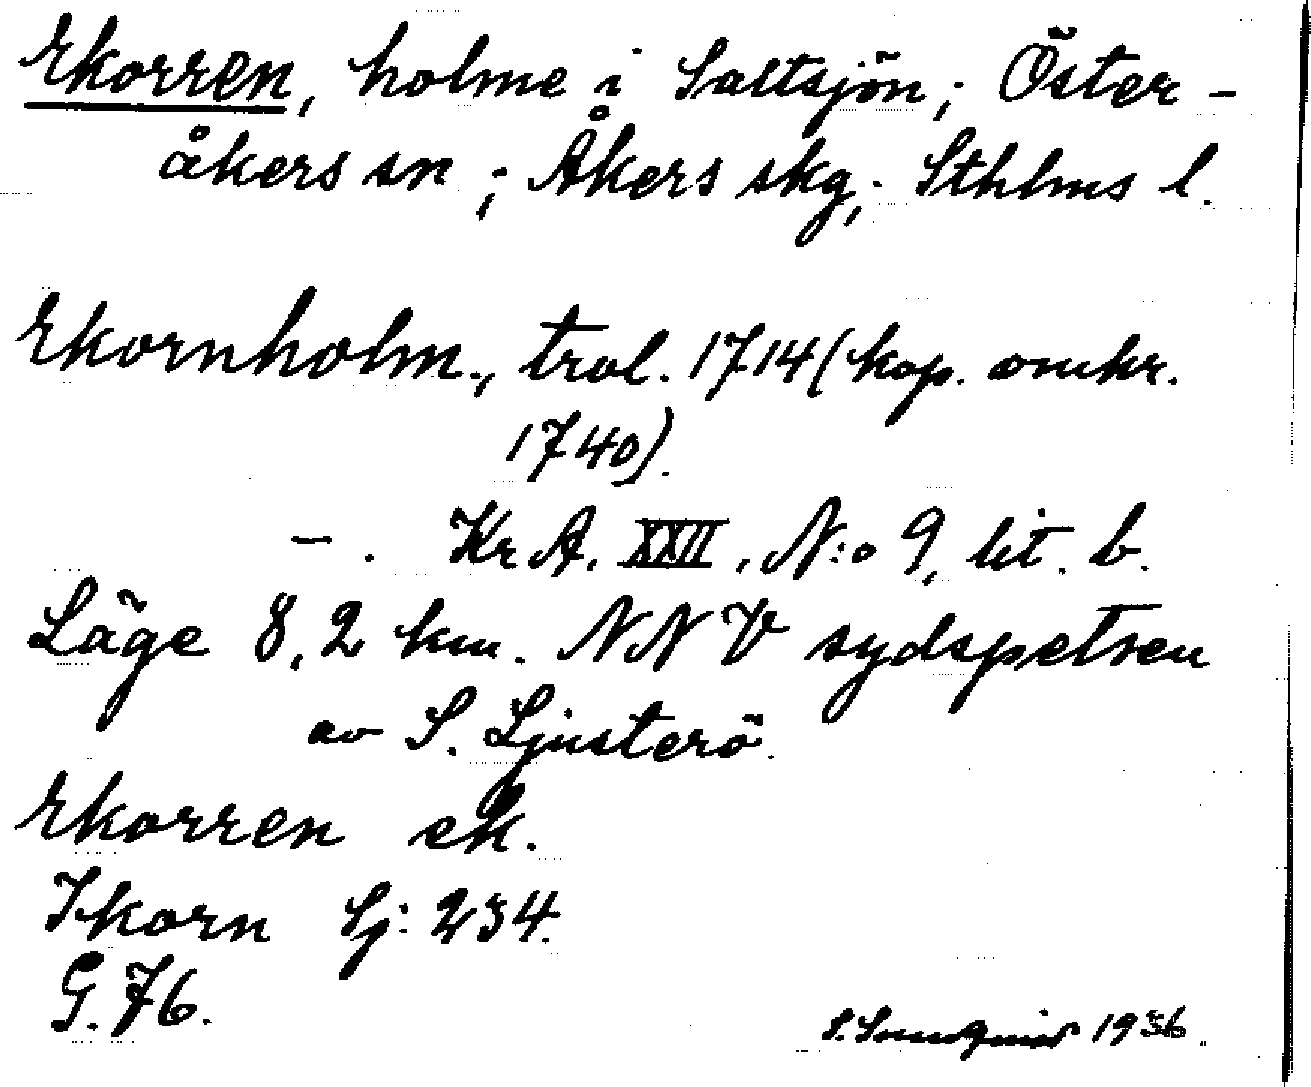 Ekorren, holme i Saltsjön; Öster-
åkers sn; Åkers skg; Sthlms l.
Ekornholm., trol. 1714 (kop. omkr.
1740).
– . Kr A. XXII, N:o 9, lit. b.
Läge 8,2 km. NNV sydspetsen
av S. Ljusterö.
Ekorren ek.
Ikorn Sj: 234.
G. 76.
S. 1936